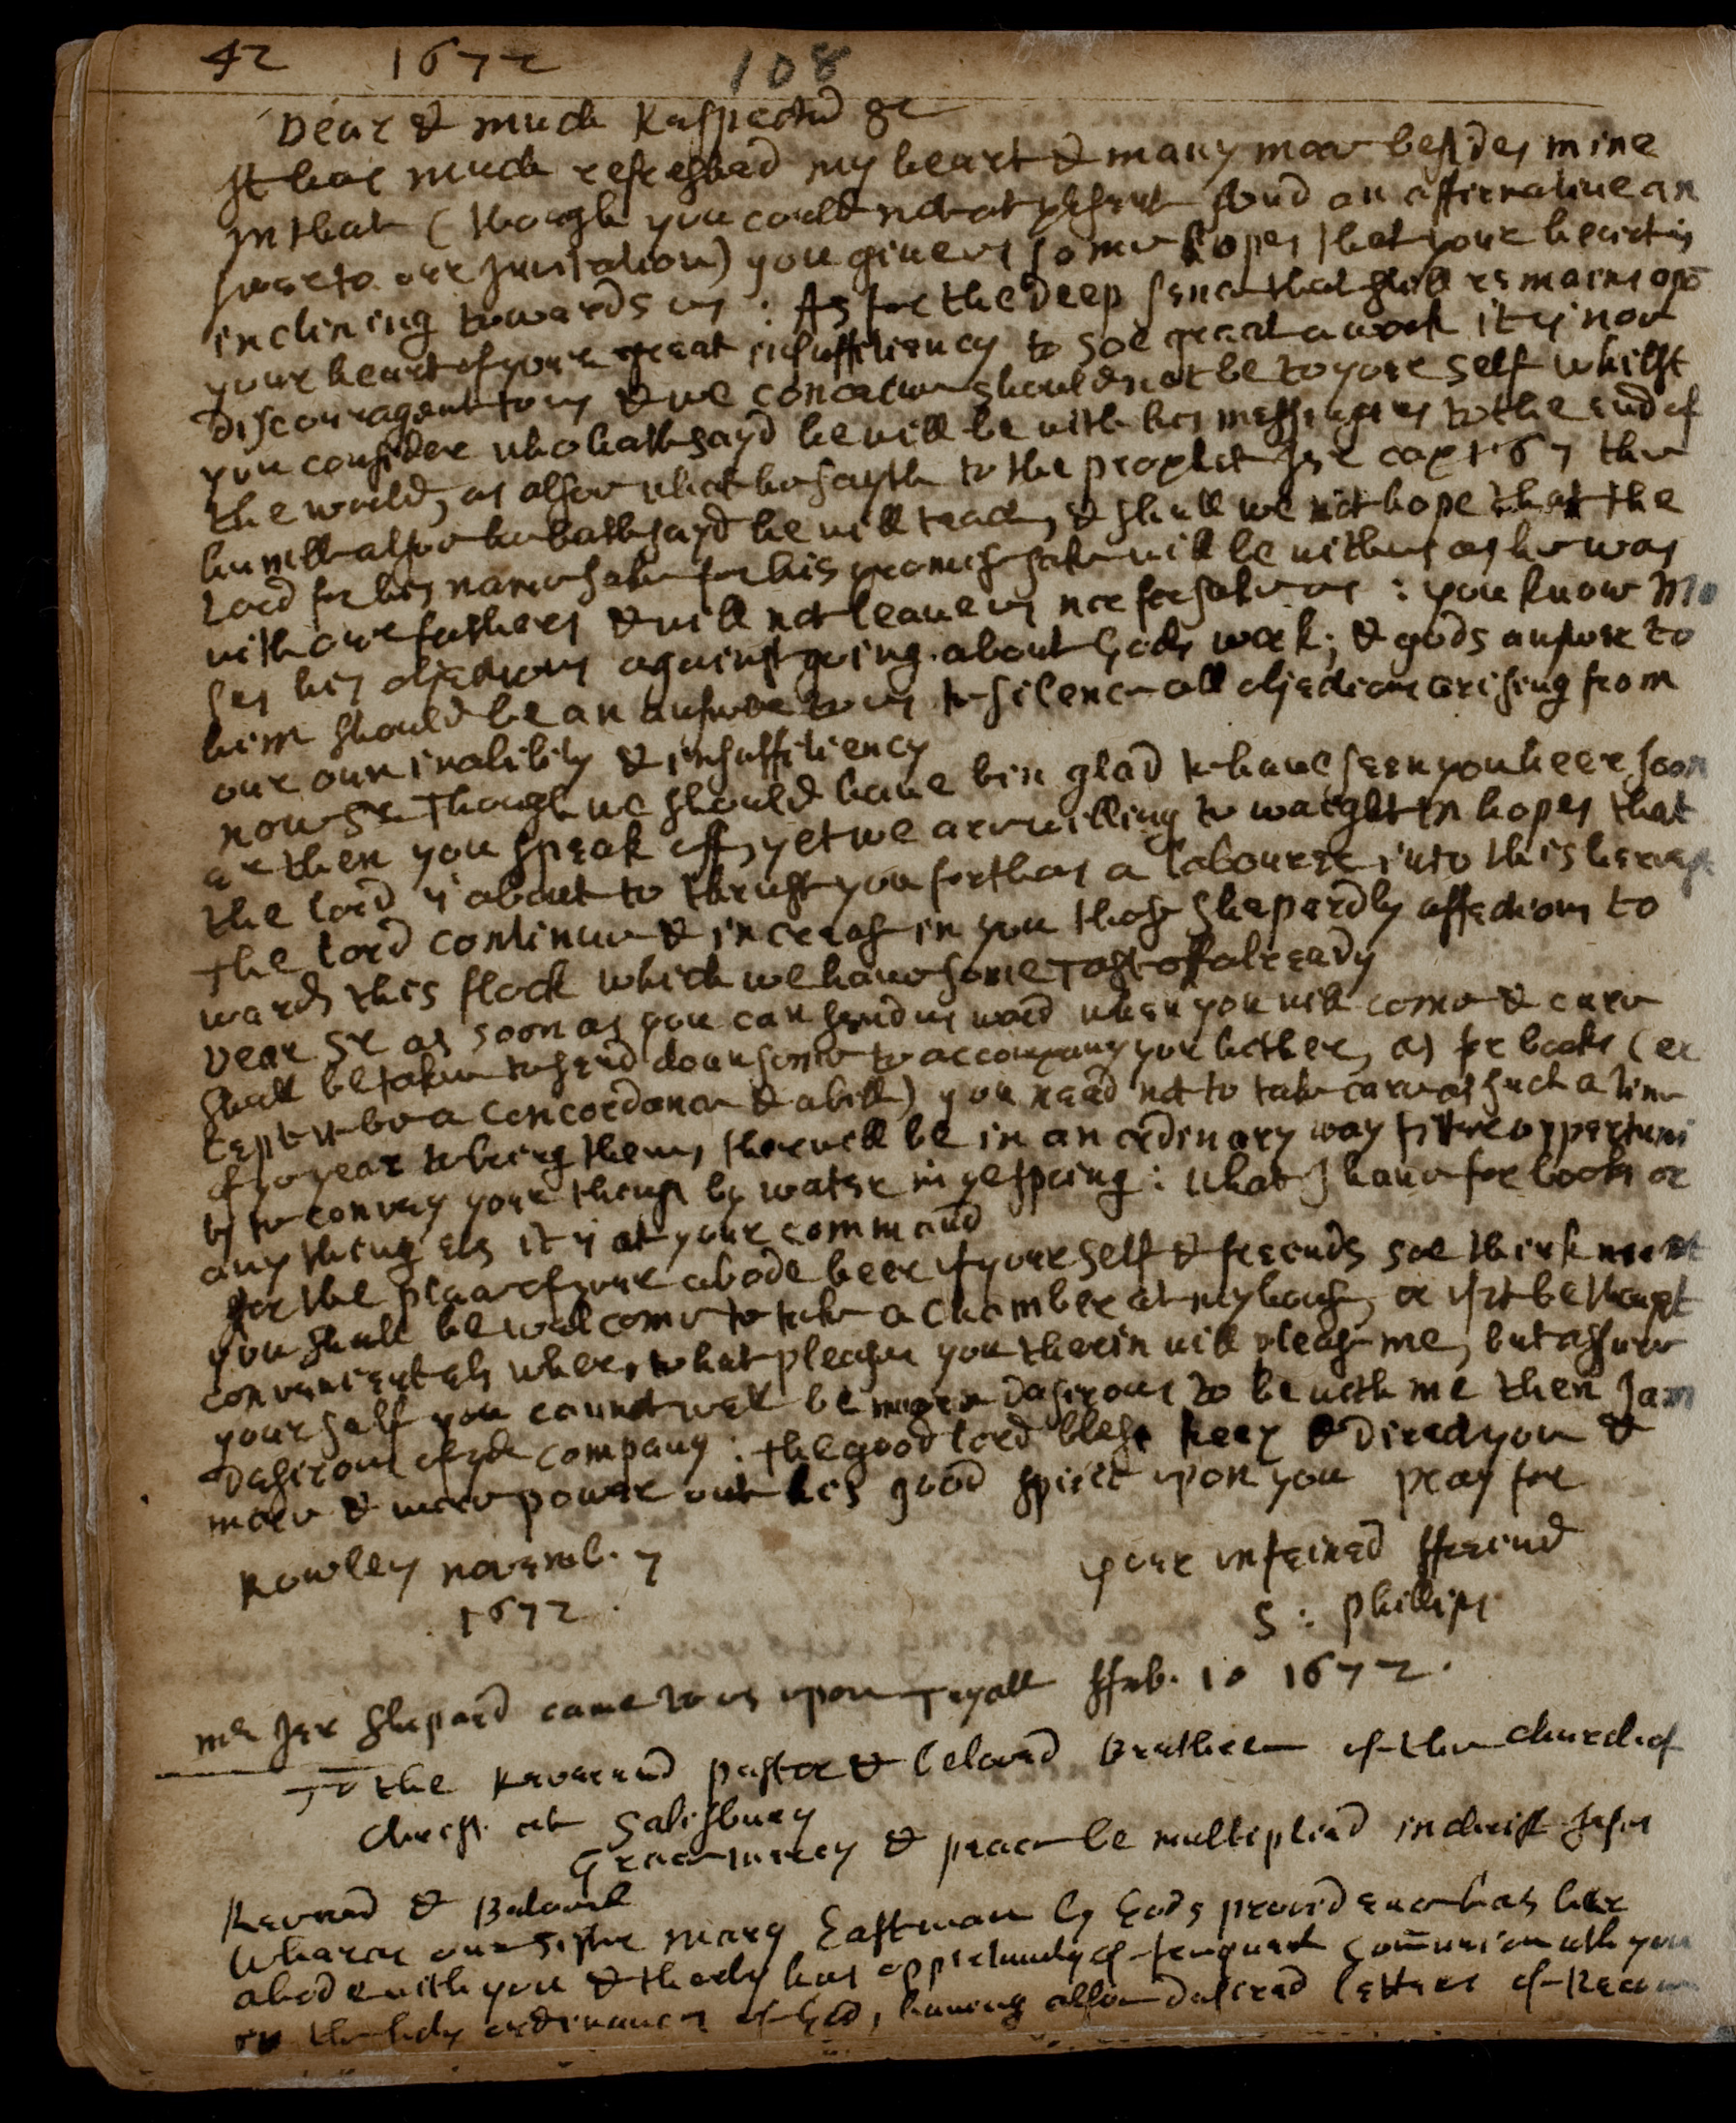 42 1672 108
Dear & much Respected Sr
It has much refreshed my heart & many mor besides mine
in that (though you could not at present send an affirmative an
swer to our Invitation) you give us som hopes that your heart is
inclining towards us : As for the deep senc that still remains
your heart of your great insuffitiency to soe great a work it is noe
discouragent to us & we conceive should not be to your self whilst
you consider who hath sayd he will be with his messingers to the end of
the world, as also what he sayth to the prophet Jer cap 1 6 7 the
humble also he hath sayd he will teach, & shall we not hope that the
Lord for his names sake for his promiss sake will be with us as he was
with our fathers & will not leave us nor forsake us : you know Mo
ses his objections against going about Gods work; & gods answer to
him should be an answer to us to silence all objections arising from
our own inability & insuffitiency
now Sr Though we should have bin glad to have seen you heer soon
er then you speak off, yet we are willing to waight in hopes that
the lord is about to thrust you forth as a labourer into this harvest
The lord continue & increas in you thos shepardly affections to
wards this flock which we have some Tast off already
Dear Sr as soon as you can send us word when you will come & care
shall be taken to send down some to accompany you hether, as for books (ex
cept it be a concordance & a bible) you need not to take care at such a time
of ye year to bring them, ther will be in an ordinary way fitt opportuni
ty to convey your things by water in ye spring : What I have for books or
any thing els it is at your command
for the place of your abode heer if your self & freinds soe think meet
you shall be welcome to take a chamber at my hous, or if it be thought
convenient els wher, what pleases you therin will pleas me, but assure
your self you cannot well be more desirous to be with me then I am
desirous of yor company : the good lord bless keep & direct you &
more & more power out his good spirit upon you pray for
your unfeined ffreind
Rowley novemb. 7
1672. S : Phillips
mr Jer Shepard came to us upon Tryall ffeb. 10 1672.
To the Reverend pastor & beloved Brethren of the church of
christ at Salisbury
Grace mercy & peace be multiplied in christ Jesus
Reverend & Beloved
Wheras our sister mary Eastman by Gods providence has her
abode with you & therby has oppertunity of frequent communion with you
in the holy ordinances of God, having also desired letters of Recom